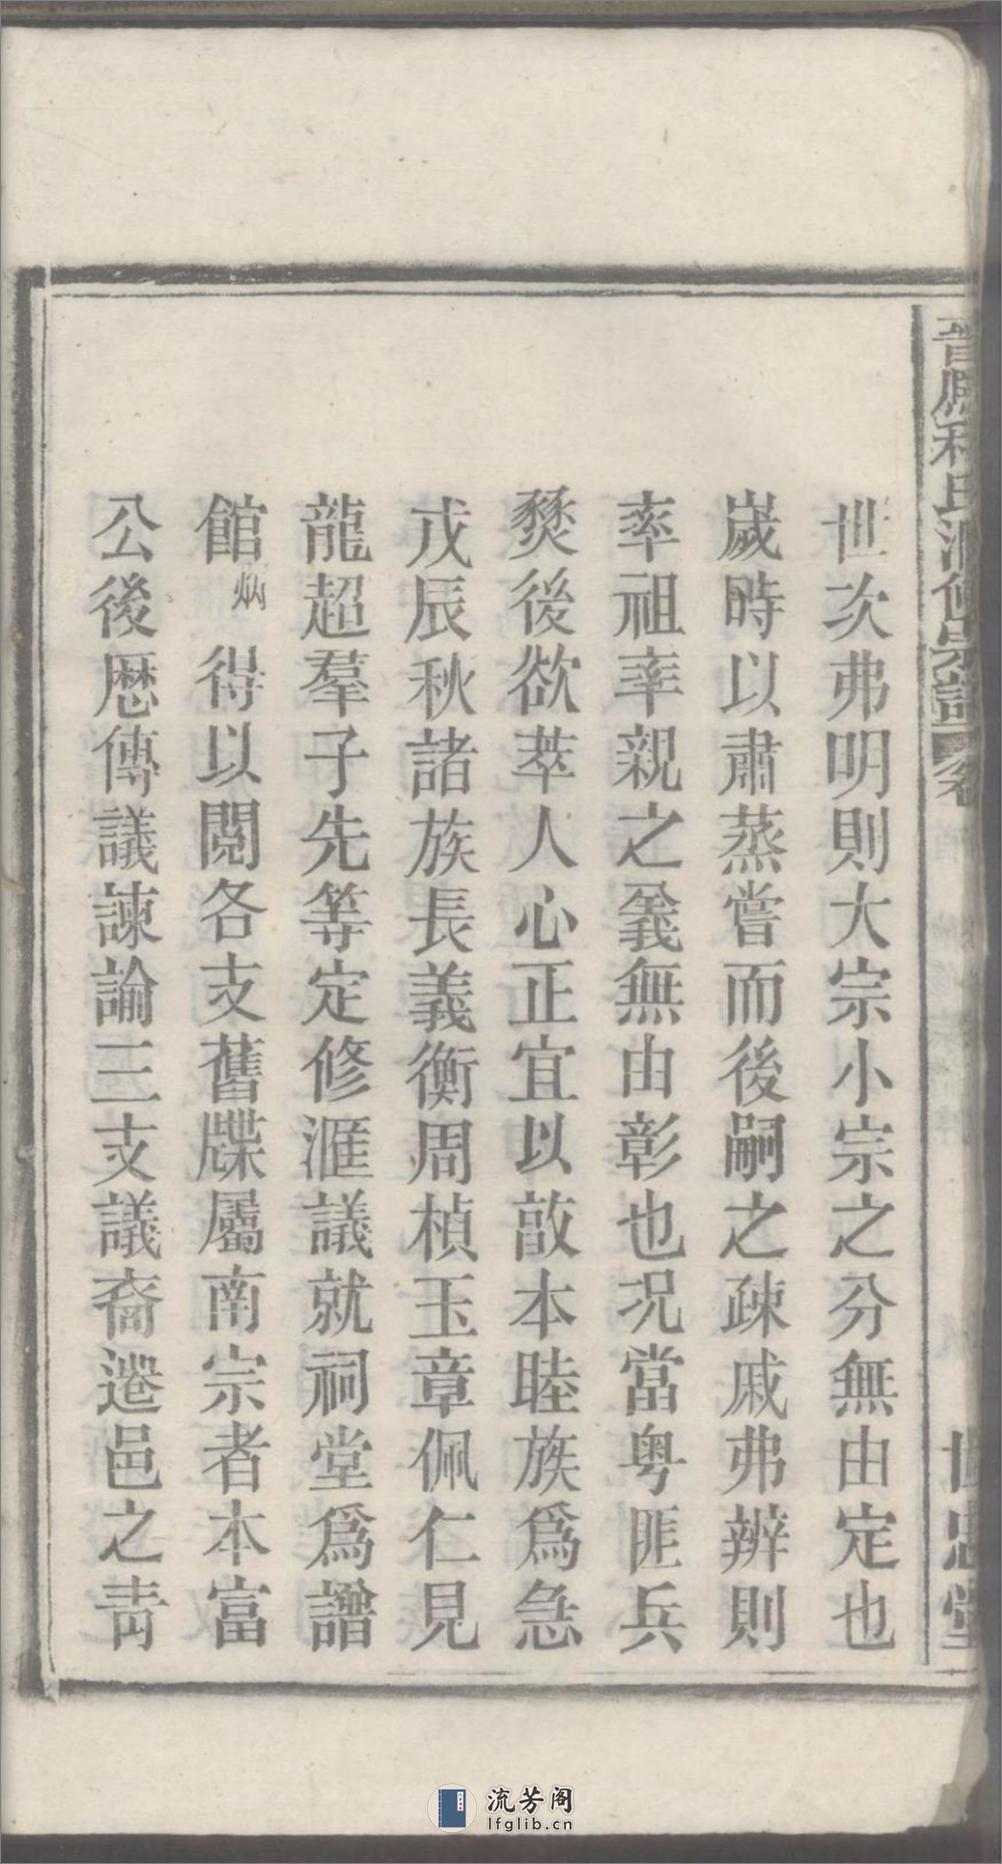 世次弗明則大宗小宗之分無由定也
嵗時以肅蒸嘗而後嗣之疎戚弗辨則
率祖率親之義無由彰也况當粤匪兵
燹後欲萃人心正宜以敲本睦族爲急
戊辰秋諸族長義衡周楨玉章佩仁見
龍超羣子先等定修滙議就祠堂爲譜
館炳得以閱各支舊牒屬南宗者本富
公後厯傳議諫諭三支議裔遷邑之青
世忠堂
流芳阁
lfglib.cn